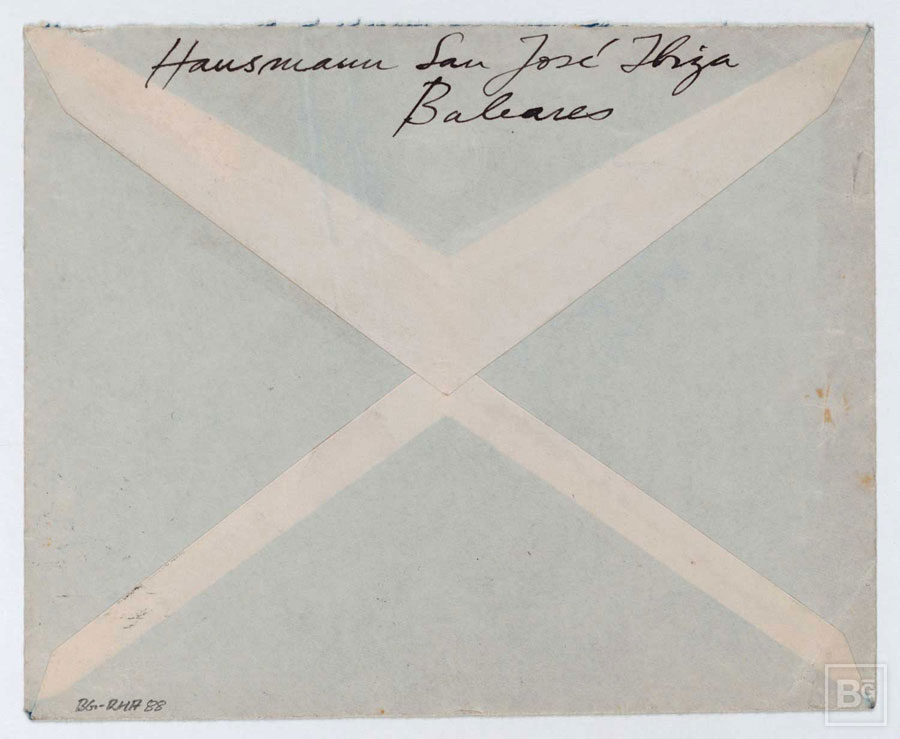 Hausmann San José Ibiza
Baleares
BG-RHA 88
BG